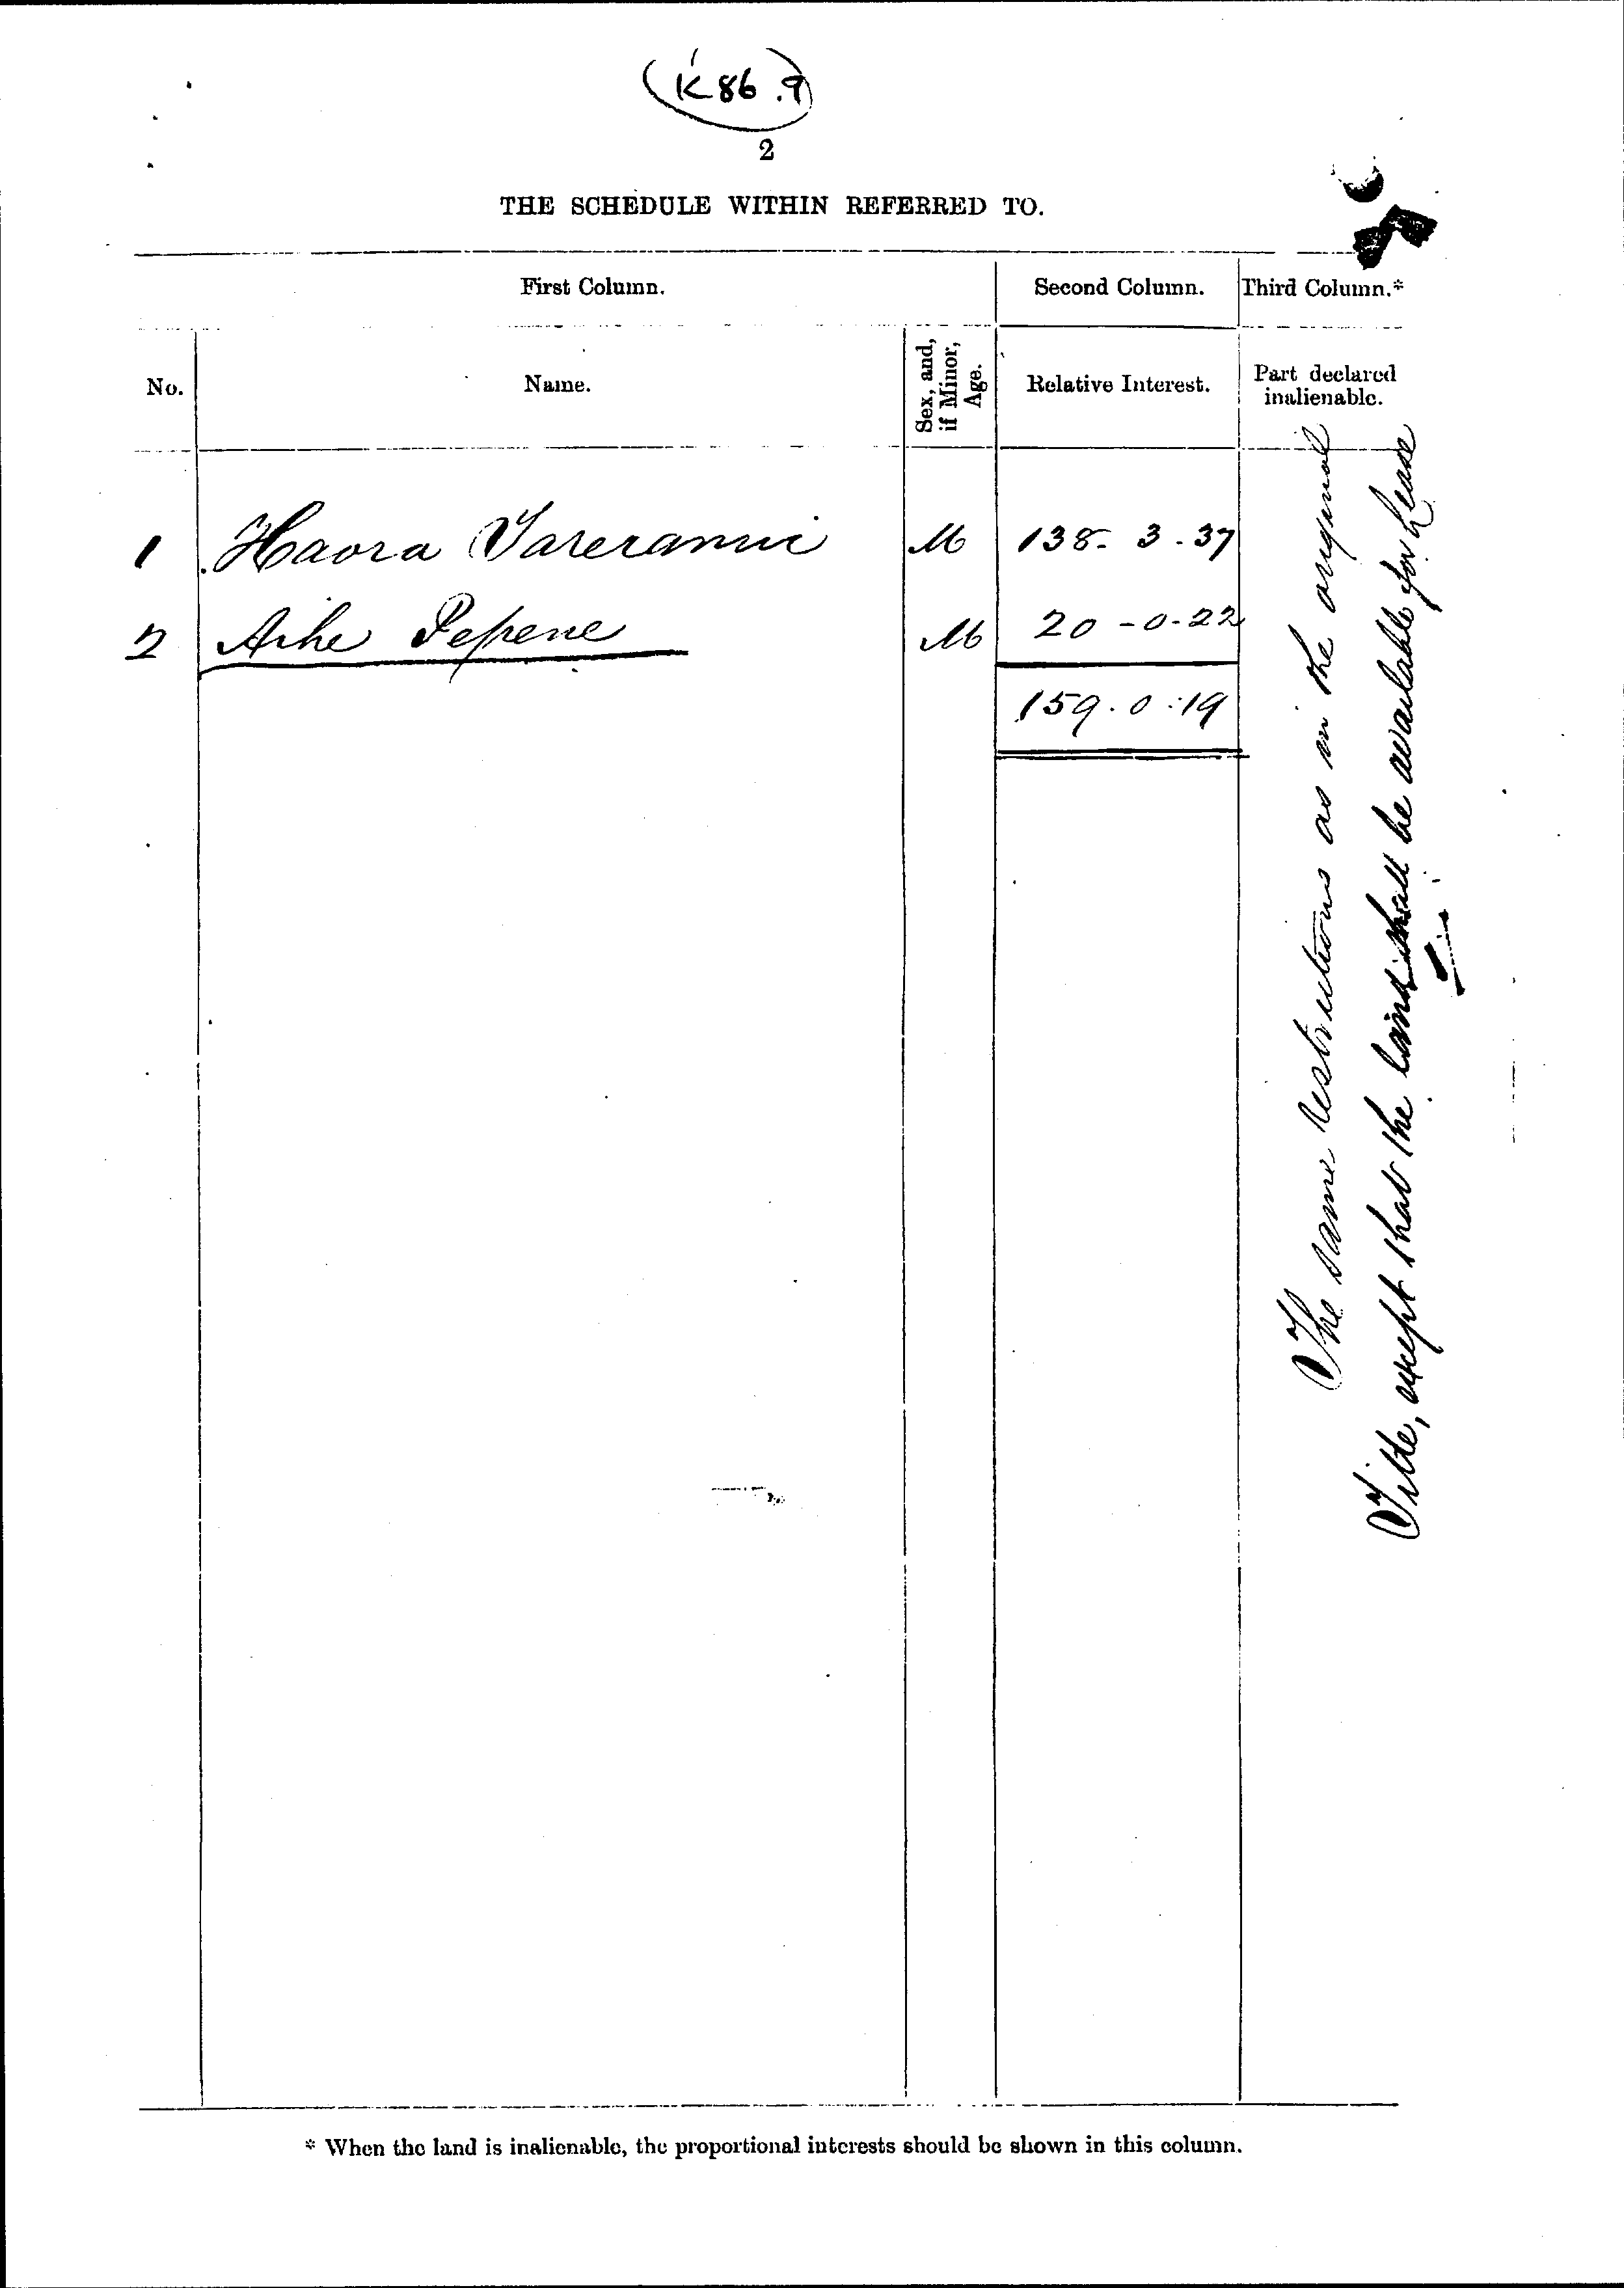 (K 86 . 9)
2
THE SCHEDULE WITHIN REFERRED TO.
First Column. Second Column. Third Column.*
No. Name. Sex, and, if Minor, Age. Relative Interest. Part declared inalienable.
1 Haora Tareranui M 138. 3. 37
2 Arhe Pepene M 20 - 0 - 22
159. 0. 19
The same restrictions as in the original
Title, except that the land shall be available for Lease
* When the land is inalienable, the proportional interests should be shown in this column.